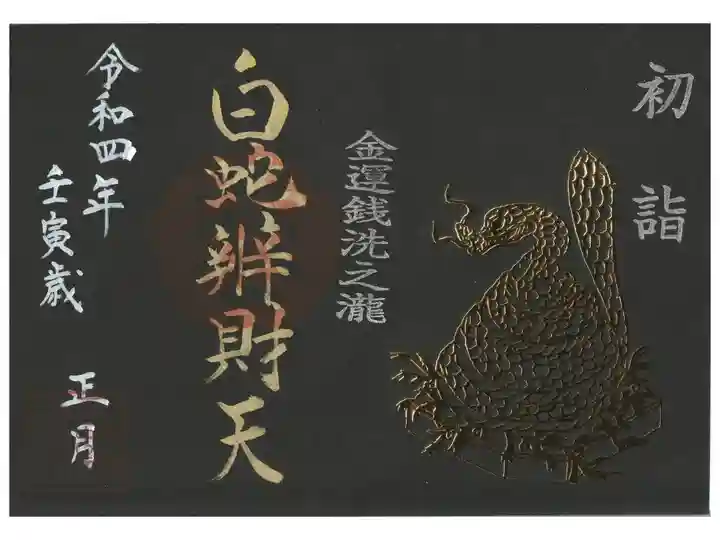 初詣
金運銭洗之瀧
白蛇辨財天
令和四年
壬寅歳
正月